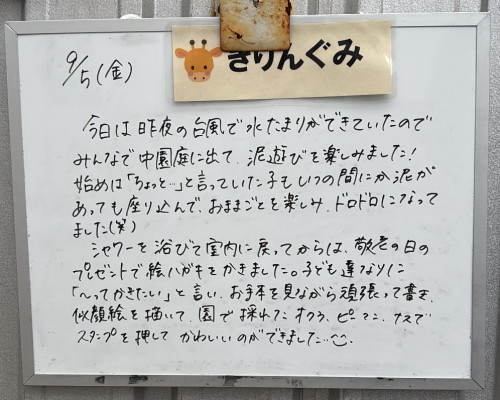 きりんぐみ
9/5(金)
今日は昨夜の台風で水たまりができていたので
みんなで中園庭に出て、泥遊びを楽しみました!
始めは「ちょっと…」と言っていた子もいつの間にか泥が
あっても座り込んで、おままごとを楽しみ、ドロドロになって
ました(笑)
シャワーを浴びて室内に戻ってからは、敬老の日の
プレゼントで絵ハガキをかきました。子ども達なりに
「〜ってかきたい」と言い、お手本を見ながら頑張って書き、
似顔絵を描いて、園で採れたオクラ、ピーマン、ナスで
スタンプを押して かわいいのができました…